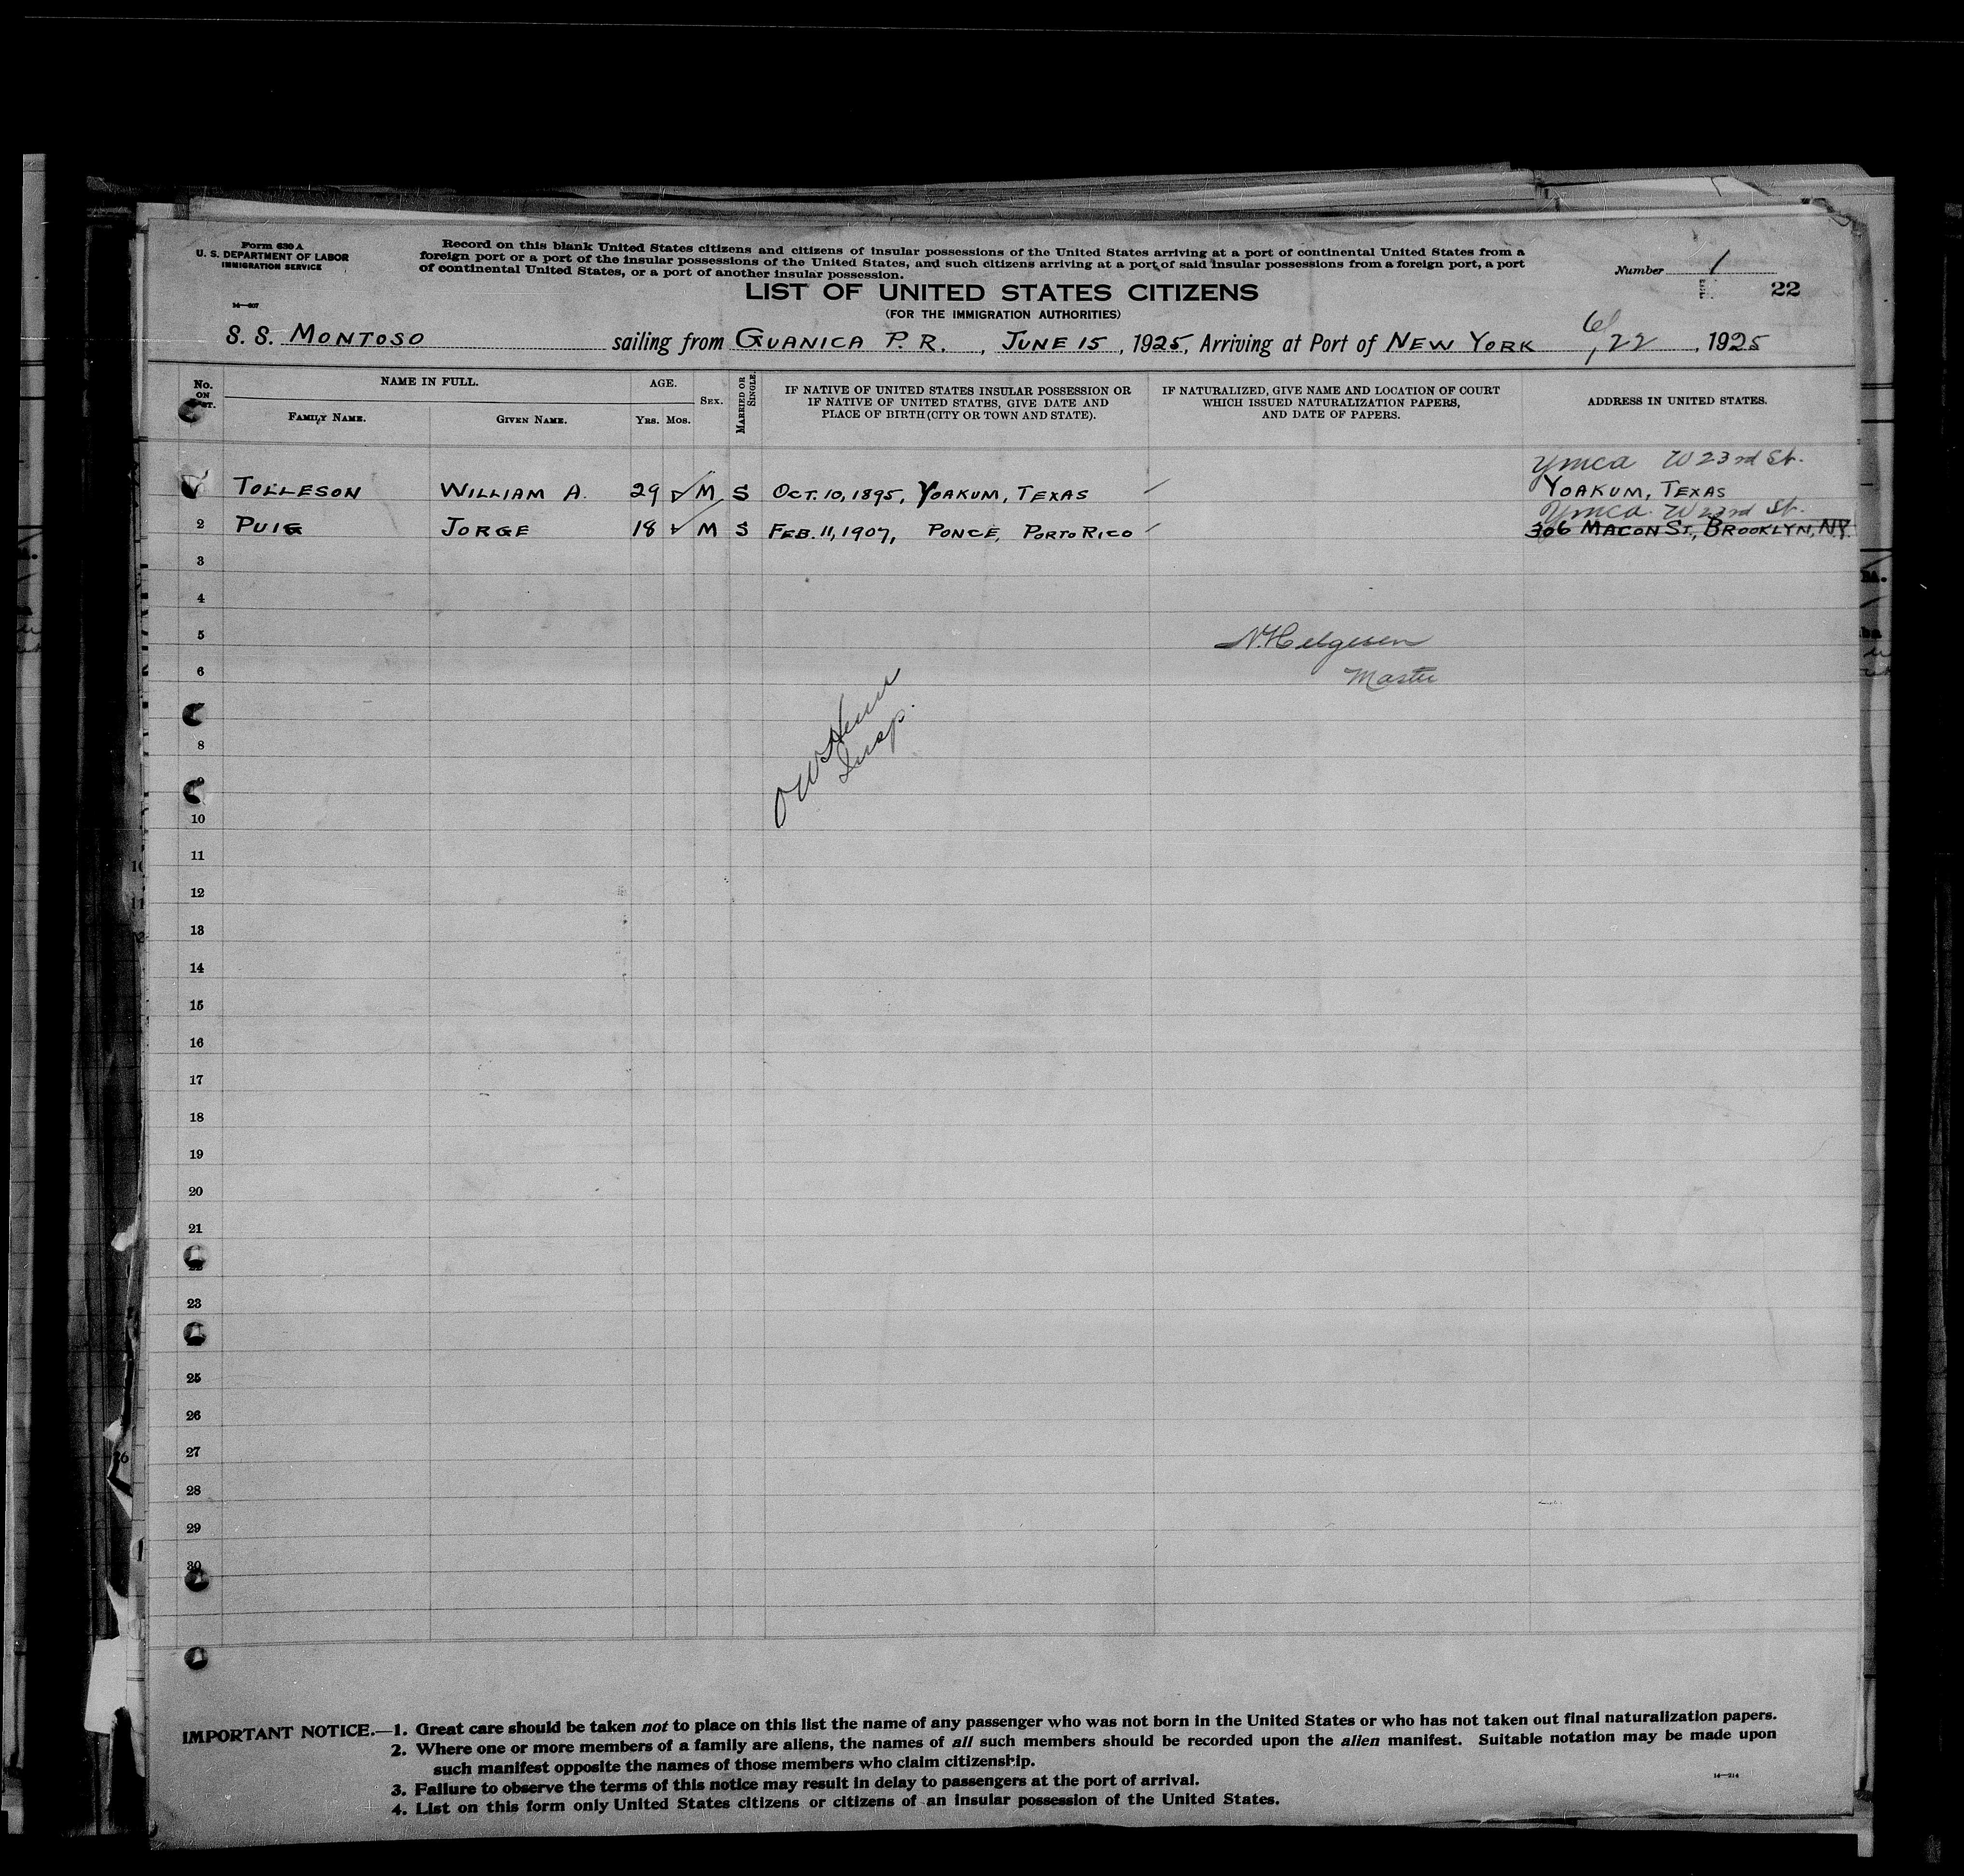 Form 630 A
U. S. DEPARTMENT OF LABOR
IMMIGRATION SERVICE
14—607
Record on this blank United States citizens and citizens of insular possessions of the United States arriving at a port of continental United States from a
foreign port or a port of the insular possessions of the United States, and such citizens arriving at a port of said insular possessions from a foreign port, a port
of continental United States, or a port of another insular possession.
Number 1
22
LIST OF UNITED STATES CITIZENS
(FOR THE IMMIGRATION AUTHORITIES)
S. S. MONTOSO sailing from GUANICA P. R., JUNE 15, 1925, Arriving at Port of NEW YORK 6/22, 1925
No. ON LIST.
NAME IN FULL.
FAMILY NAME.
GIVEN NAME.
AGE.
YRS. MOS.
SEX.
MARRIED OR SINGLE.
IF NATIVE OF UNITED STATES INSULAR POSSESSION OR
IF NATIVE OF UNITED STATES, GIVE DATE AND
PLACE OF BIRTH (CITY OR TOWN AND STATE).
IF NATURALIZED, GIVE NAME AND LOCATION OF COURT
WHICH ISSUED NATURALIZATION PAPERS,
AND DATE OF PAPERS.
ADDRESS IN UNITED STATES.
Ymca W 23rd St.
TOLLESON WILLIAM A. 29 M S OCT. 10, 1895, YOAKUM, TEXAS YOAKUM, TEXAS
Ymca. W 23rd St.
2 PUIG JORGE 18 M S FEB. 11, 1907, PONCE, PORTO RICO 306 MACON ST., BROOKLYN, N.Y.
3
4
5 N. Helgesen
6 Master
8
Insp.
9
10
11
12
13
14
15
16
17
18
19
20
21
22
23
25
26
27
28
29
30
IMPORTANT NOTICE.—1. Great care should be taken not to place on this list the name of any passenger who was not born in the United States or who has not taken out final naturalization papers.
2. Where one or more members of a family are aliens, the names of all such members should be recorded upon the alien manifest. Suitable notation may be made upon
such manifest opposite the names of those members who claim citizenship.
3. Failure to observe the terms of this notice may result in delay to passengers at the port of arrival.
4. List on this form only United States citizens or citizens of an insular possession of the United States.
14—214